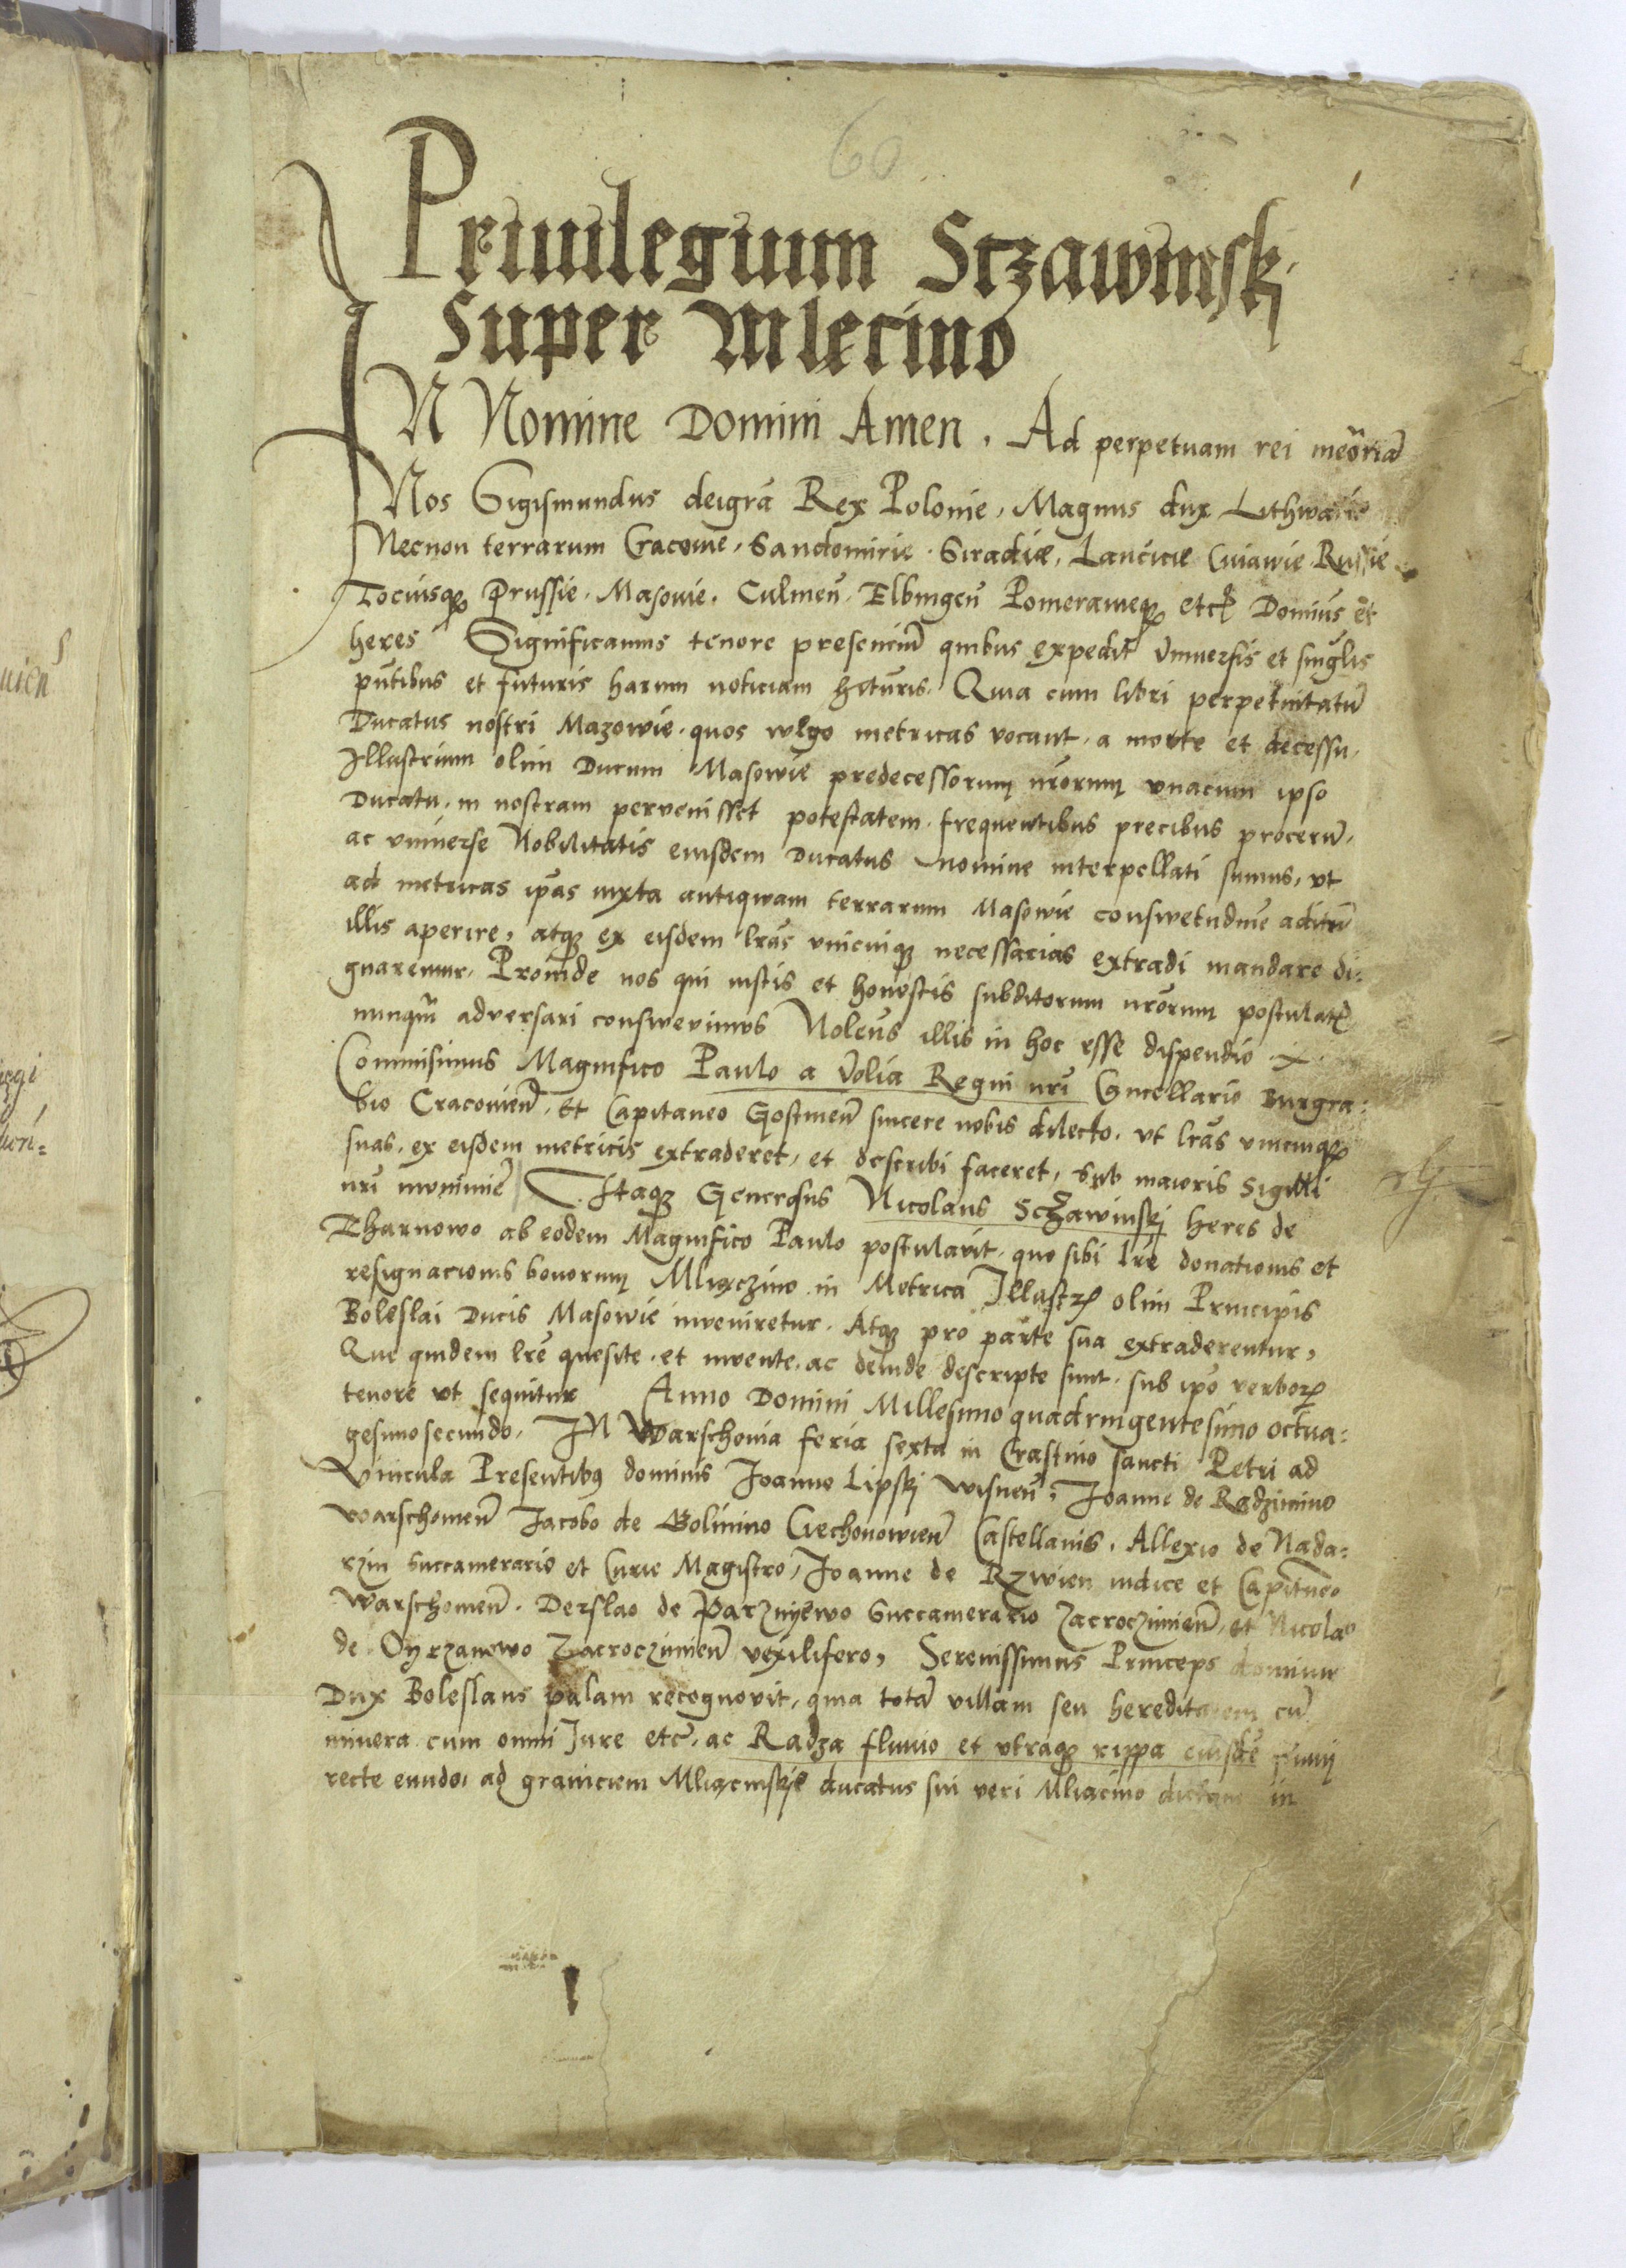 60
Priuilegium Sczawinskj
Super Mlecino
IN Nomine Domini Amen. Ad perpetuam rei meoria
Nos Sigismundus deigra Rex Polonie, Magnus dux Lithwanie
Necnon terrarum Cracouie, Sandomirie. Siradie, Lancicie Cuiawie Russie
Tociusq Prussie. Masouie. Culmen. Elbingen Pomeranieq etc Dominus et
heres Significamus tenore presenciu quibus expedit Vniuersis et singlis
pntibus et futuris harum noticiam hituris. Quia cum libri perpetuitatu
Ducatus nostri Mazowie. quos wlgo metricas vocant. a morte et decessu.
Illustrium olim Ducum Masowie predecessorum nrorum vnacum ipso
Ducatu. in nostram pervenisset potestatem. frequentibus precibus proceru.
ac vniuerse Nobilitatis eiusdem Ducatus nomine interpellati sumus, vt
ad metricas ipas iuxta antiqwam terrarum Masowie conswetudine aditu
illis aperire, atq ex eisdem lras vnicuiq necessarias extradi mandare di:
gnaremur. Proinde nos qui iustis et honestis subditorum nrorum postulat
nunqm adversari conswevimus Nolens illis in hoc esse dispendio
Commisimus Magnifico Paulo a Volia Regni nri Cancellario Burgra:
bio Cracouien. Et Capitaneo Gostinen sincere nobis dilecto. vt lras vnicuiq
suas. ex eisdem metricis extraderet, et describi faceret, sub maioris Sigilli
nri munimie Itaq Generosus Nicolaus Sczawinskj heres de
Tharnowo ab eodem Magnifico Paulo postulavit. quo sibi lre donationis et
resignacionis bonorum Mliączino in Metrica Illustr olim Principis
Boleslai Ducis Masowie inveniretur. Atq pro parte sua extraderentur,
Que quidem lre quesite. et invente. ac deinde descripte sunt. sub ipo verbor
tenore vt sequitur Anno Domini Millesimo quadringentesimo octua:
gesimosecundo. IN Warschouia feria sexta in Crastino sancti Petri ad
Vincula Presentibus dominis Joanne Lipskj Wisnen, Joanne de Radzimino
Warschouien Jacobo de Golimino Ciechonowien Castellanis. Allexio de Nada:
rzin Succamerario et Curie Magistro, Joanne de Rzwien iudice et Capitaneo
Warschouien. Derslao de Parznyewo Succamerario Zacroczimien, et Nicolao
de Oyrzanowo Zacroczimien vexilifero, Serenissimus Princeps dominus
Dux Boleslaus palam recognovit, quia tota villam seu hereditatem cu
minera cum omni Jure etc. ac Radza fluuio et vtraq rippa eiusde fluuij
recte eundo, ad graniciem Mliącinskie ducatus sui veri Mliacino dictam in